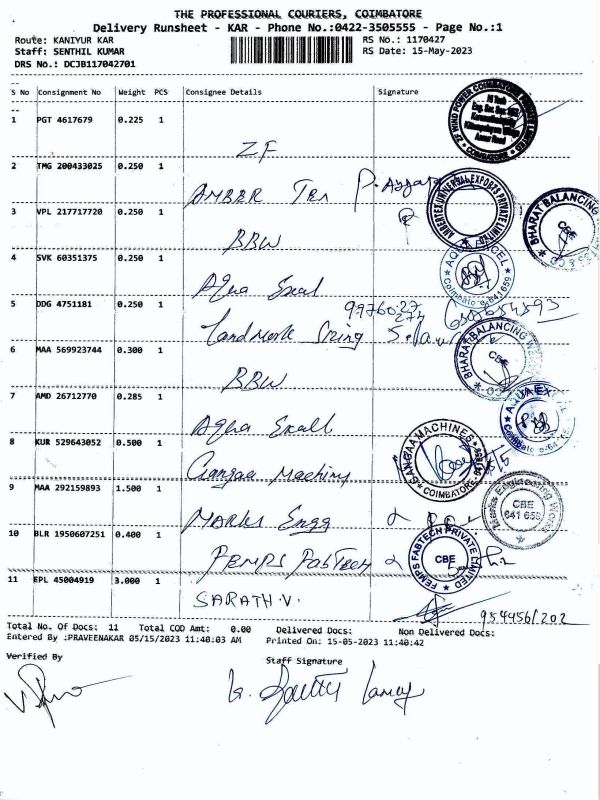 THE PROFESSIONAL COURIERS, COIMBATORE
Delivery Runsheet - KAR - Phone No.:0422-3505555 - Page No.:1
Route: KANIYUR KAR
RS No.: 1170427
Staff: SENTHIL KUMAR
RS Date: 15-May-2023
DRS No.: DCJB117042701
S No Consignment No Weight PCS Consignee Details Signature
1 PGT 4617679 0.225 1
ZF
2 TMG 200433025 0.250 1
AMBER Tex
AMBERTEX UNIVERSAL EXPORTS PRIVATE LIMITED
3 VPL 217717720 0.250 1
BBW
BHARAT BALANCING
CBE
4 SVK 60351375 0.250 1
Aqua Excel
5 DDG 4751181 0.250 1
Landmark Sizing
6 MAA 569923744 0.300 1
BBW
BHARAT BALANCING
CBE
7 AMD 26712770 0.285 1
Aqua Excell
8 KUR 529643052 0.500 1
Gangaa Machiny
GANGAA MACHINES
COIMBATORE
9 MAA 292159893 1.500 1
MARKS Engg
Engineering Works
CBE
641 659
10 BLR 1950607251 0.400 1
FEMPS FabTech
FEMPS FABTECH PRIVATE LIMITED
CBE
11 EPL 45004919 3.000 1
SARATH.V.
Total No. Of Docs: 11 Total COD Amt: 0.00 Delivered Docs: Non Delivered Docs:
Entered By :PRAVEENAKAR 05/15/2023 11:40:03 AM Printed On: 15-05-2023 11:40:42
Verified By
Staff Signature